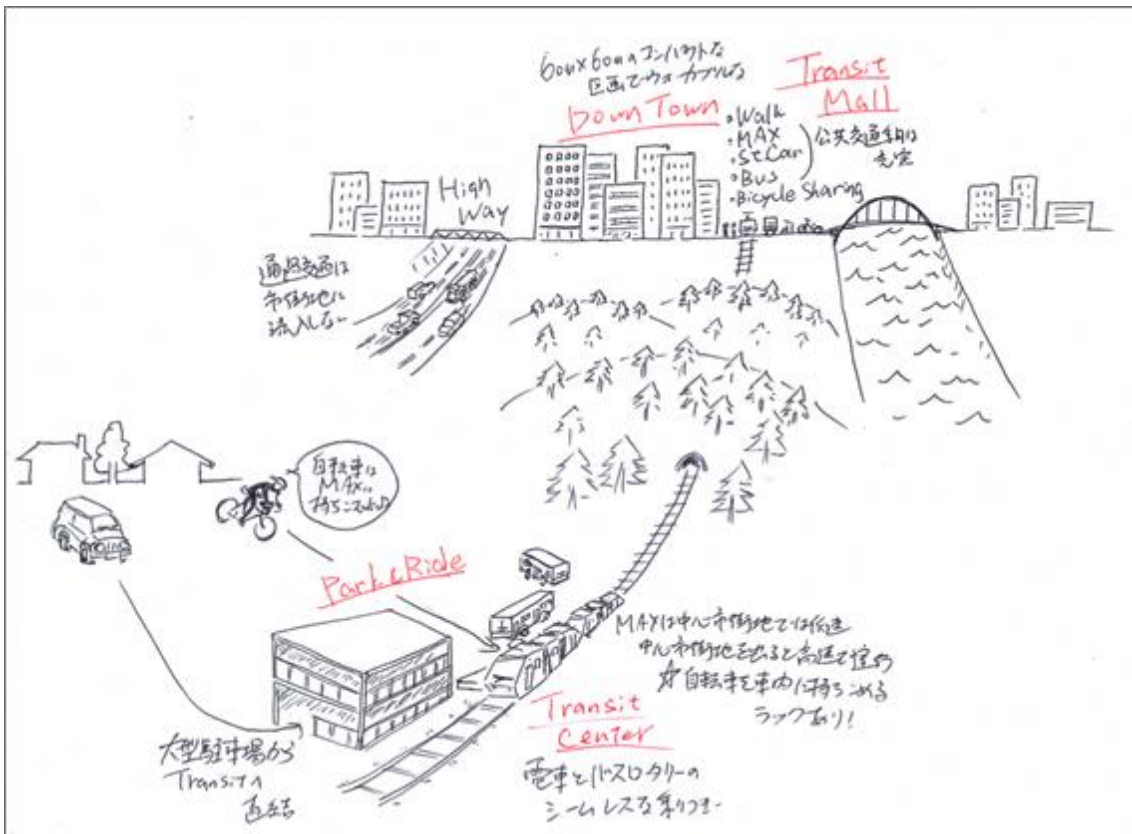 60m×60mのコンパクトな
区画でウォーカブルな
Down Town
Transit
Mall
・Walk
・MAX
・St Car
・Bus
・Bicycle Sharing
公共交通網は
充実
High
Way
通過交通は
市街地に
流入しない
自転車は
MAXに
持ちこむよ♪
Park & Ride
MAXは中心市街地では低速
中心市街地を出ると高速で運行
☆自転車を車内に持ちこめる
ラックあり!
Transit
Center
電車とバスロータリーの
シームレスな乗りつぎ
大型駐車場から
Transitへ
直結